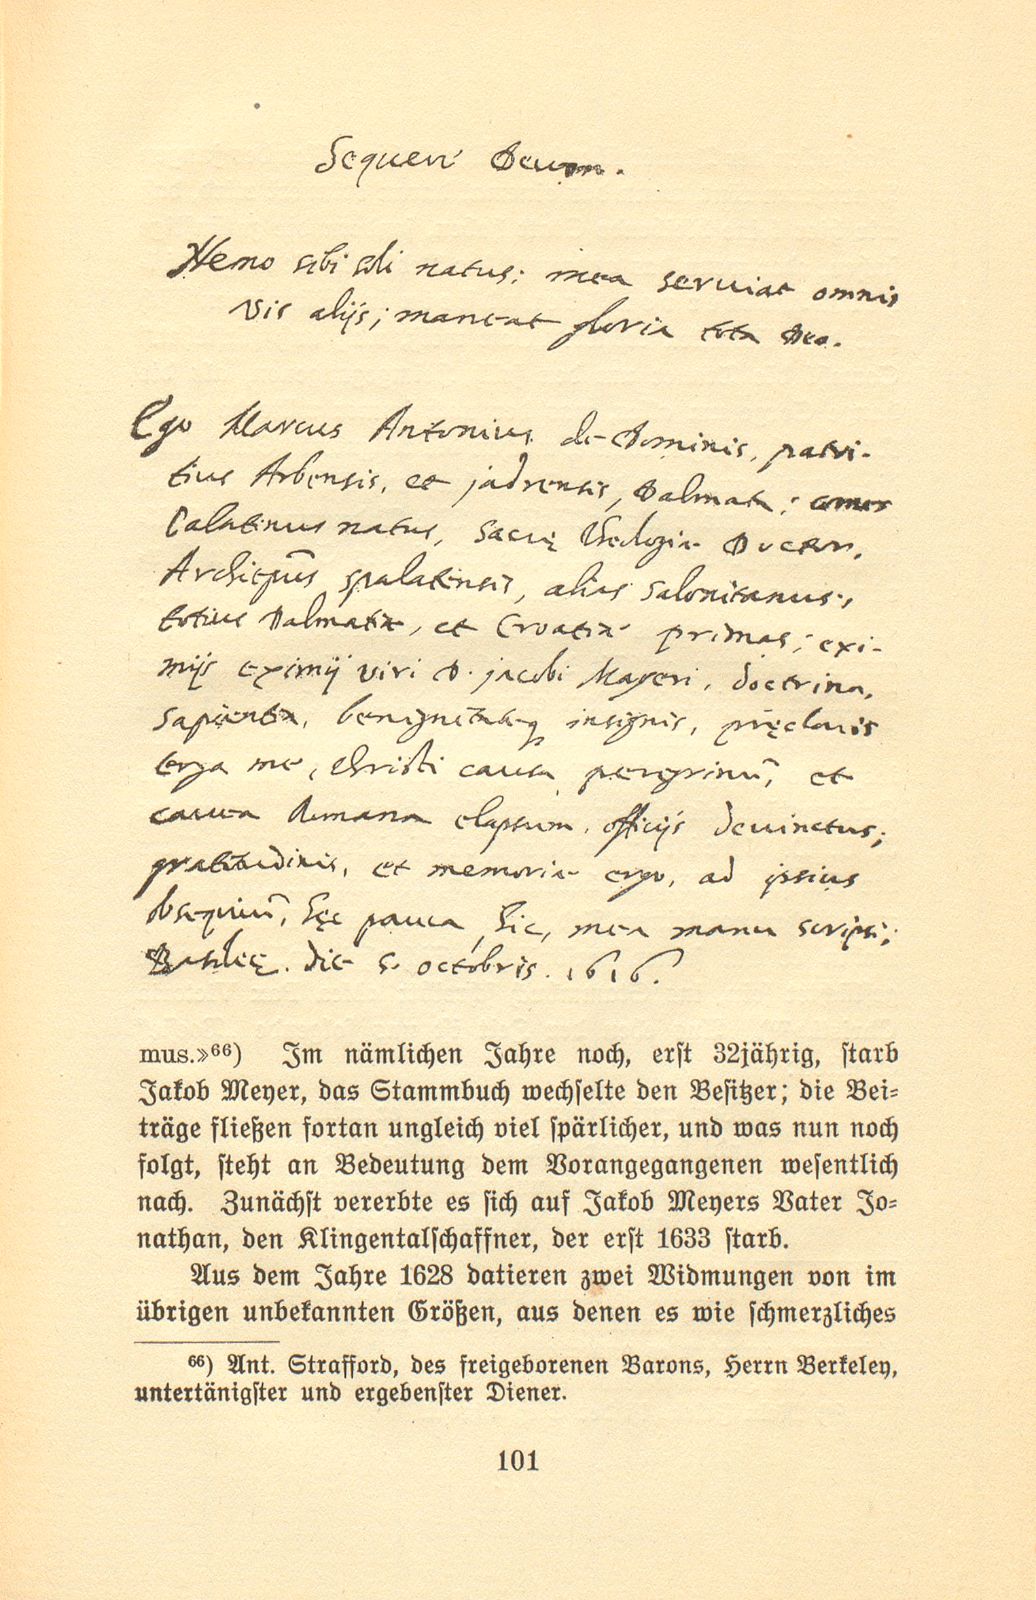 Sequeri Deum.
Nemo sibi soli natus; mea seruiat omnis
Vis alijs; maneat gloria tota Deo.
Ego Marcus Antonius de Dominis, patri-
tius Arbensis, et jadrensis, Dalmata; comes
Palatinus natus, Sacrę Theologiæ Doctor,
Archiepũs spalatensis, alias Salonitanus,
totius Dalmatiæ, et Croatiæ primas; exi-
mijs eximij viri D. jacobi Mayeri, doctrina,
sapientia, benignitateq insignis, pręclaris
erga me, Christi causa peregrinũ, et
cauea Romana elapsum, officijs deuinctus;
gratitudinis, et memoriæ ergo, ad ipsius
obsequiũ, hęc pauca, hic, mea manu scripsi;
Basileę. die 5. octobris. 1616.
mus.»⁶⁶) Im nämlichen Jahre noch, erst 32jährig, starb
Jakob Meyer, das Stammbuch wechselte den Besitzer; die Bei-
träge fließen fortan ungleich viel spärlicher, und was nun noch
folgt, steht an Bedeutung dem Vorangegangenen wesentlich
nach. Zunächst vererbte es sich auf Jakob Meyers Vater Jo-
nathan, den Klingentalschaffner, der erst 1633 starb.
Aus dem Jahre 1628 datieren zwei Widmungen von im
übrigen unbekannten Größen, aus denen es wie schmerzliches
⁶⁶) Ant. Strafford, des freigeborenen Barons, Herrn Berkeley,
untertänigster und ergebenster Diener.
101